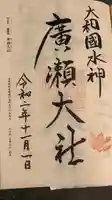 大和國水神
廣瀬大社
令和二年十一月一日